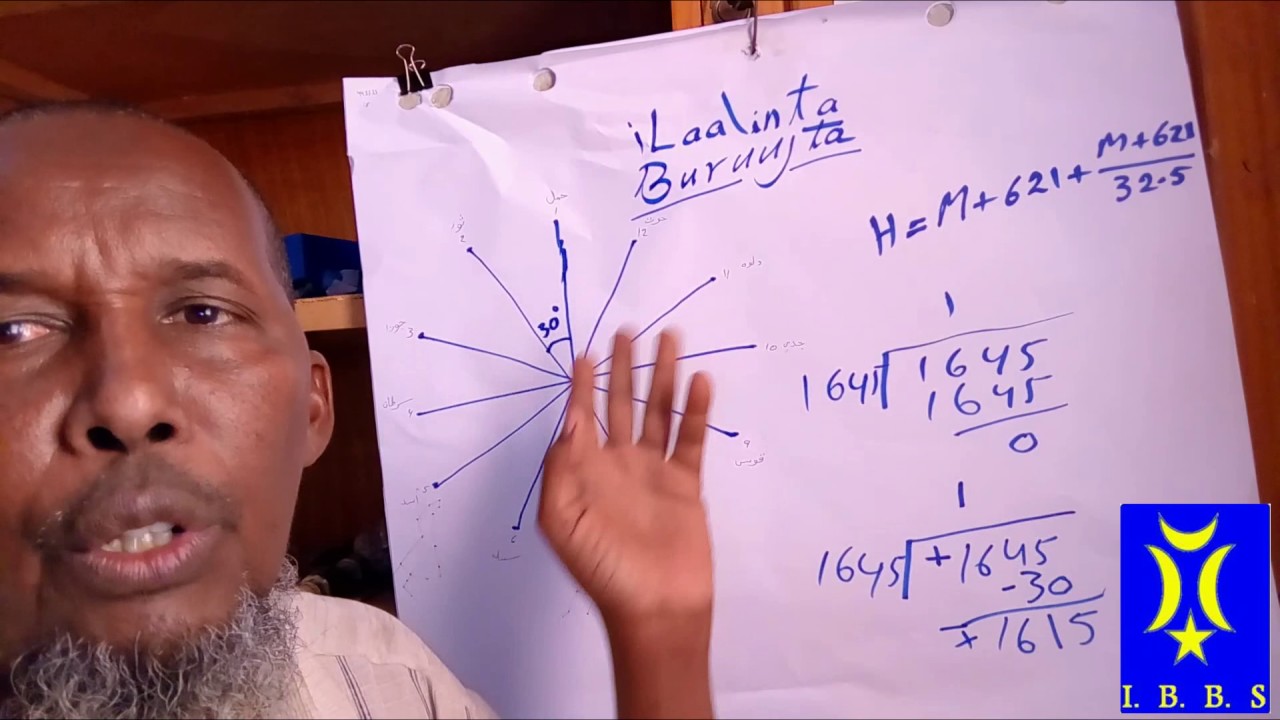 iLaalinta
Buruujta
H = M + 621 + M + 621 / 32.5
حمل
1
ثور
2
جوزا 3
سرطان
اسد
حوت
12
دلوه 11
جدي 10
قوس
30°
1
1645 1645
1645
0
1
1645 +1645
-30
+1615
I. B. B. S